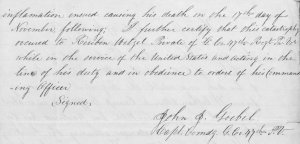 inflamation ensued causing his death on the 17th day of
November following; I further certify that this catastrophy
occured to Reuben Wetzel Private of C. Co. 47th Regt. P. V.
while in the service of the United States and acting in the
line of his duty and in obedience to orders of his Command
ing Officer
Signed,
John J. Goebel
Capt Comdg C. Co. 47th P.V.